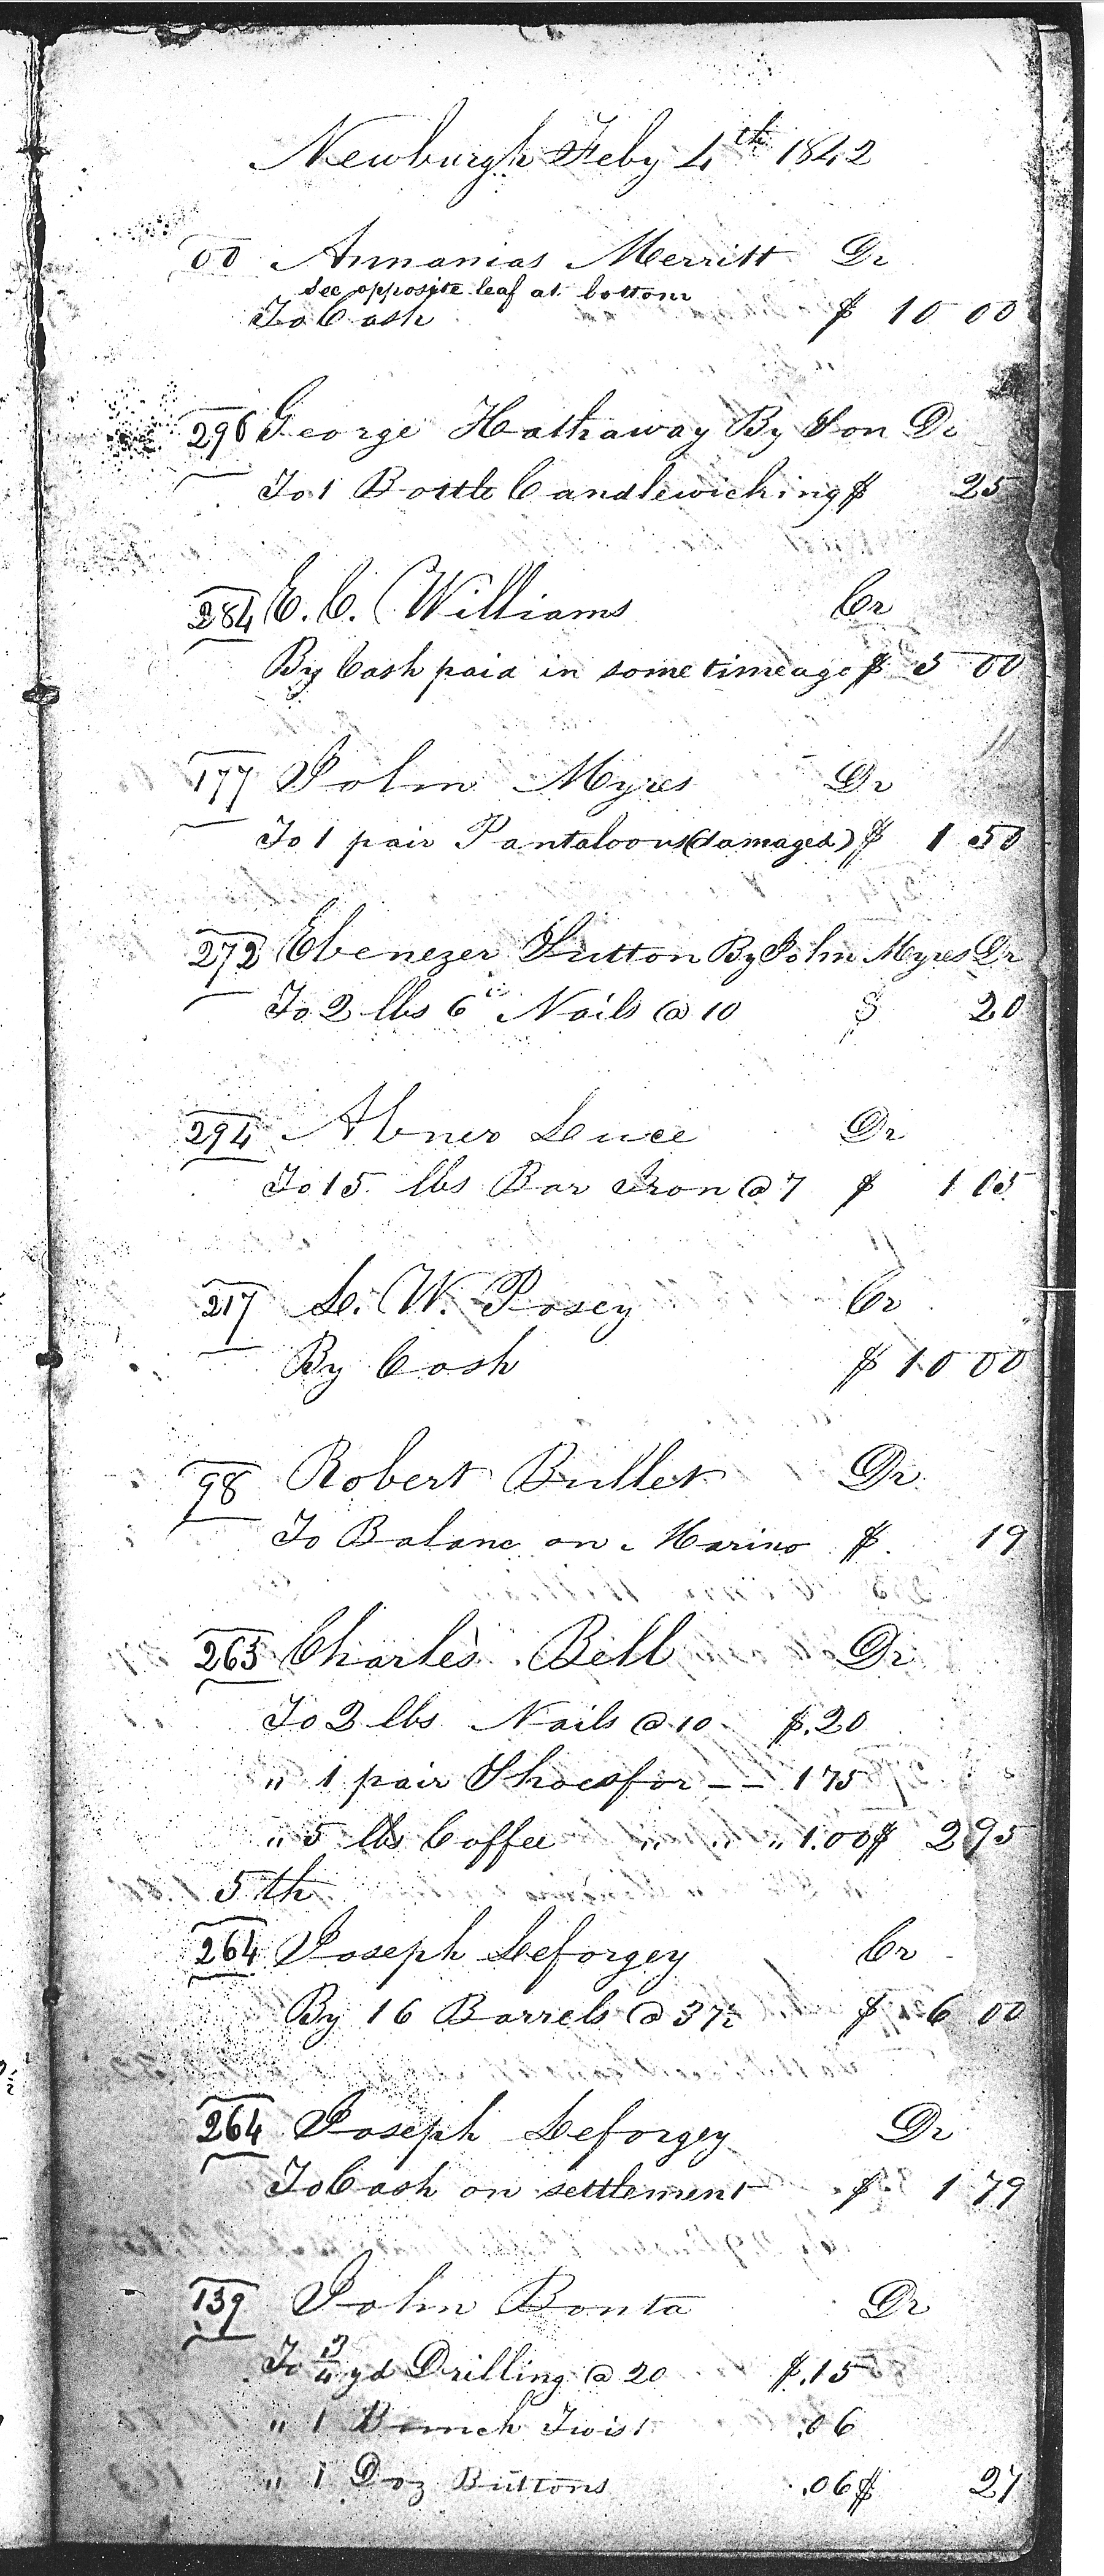 Newburgh Feby 4th 1842
00 Annanias Merritt Dr
See opposite leaf at bottom
To Cash $ 10 00
296 George Hathaway By Son Dr
To 1 Bottle Candlewicking $ 25
284 E. C. Williams Cr
By Cash paid in some time ago $ 5 00
177 John Myres Dr
To 1 pair Pantaloons (damaged) $ 1 50
272 Ebenezer Sutton By John Myres Dr
To 2 lbs 6d Nails @ 10 $ 20
294 Abner Luce Dr
To 15 lbs Bar Iron @ 7 $ 1 05
217 L. W. Posey Cr
By Cash $ 10 00
98 Robert Buller Dr
To Balanc on Marino $ 19
263 Charles Bell Dr
To 2 lbs Nails @ 10 $.20
" 1 pair Shoes for — — 1 75
" 5 lbs Coffee " " 1.00 $ 2 95
5th
264 Joseph Leforgey Cr
By 16 Barrels @ 37½ $ 6 00
264 Joseph Leforgey Dr
To Cash on settlement $ 1 79
139 John Bonta Dr
To 3/4 yd Drilling @ 20 $.15
" 1 Bunch Twist .06
" 1 Doz Buttons .06 $ 27